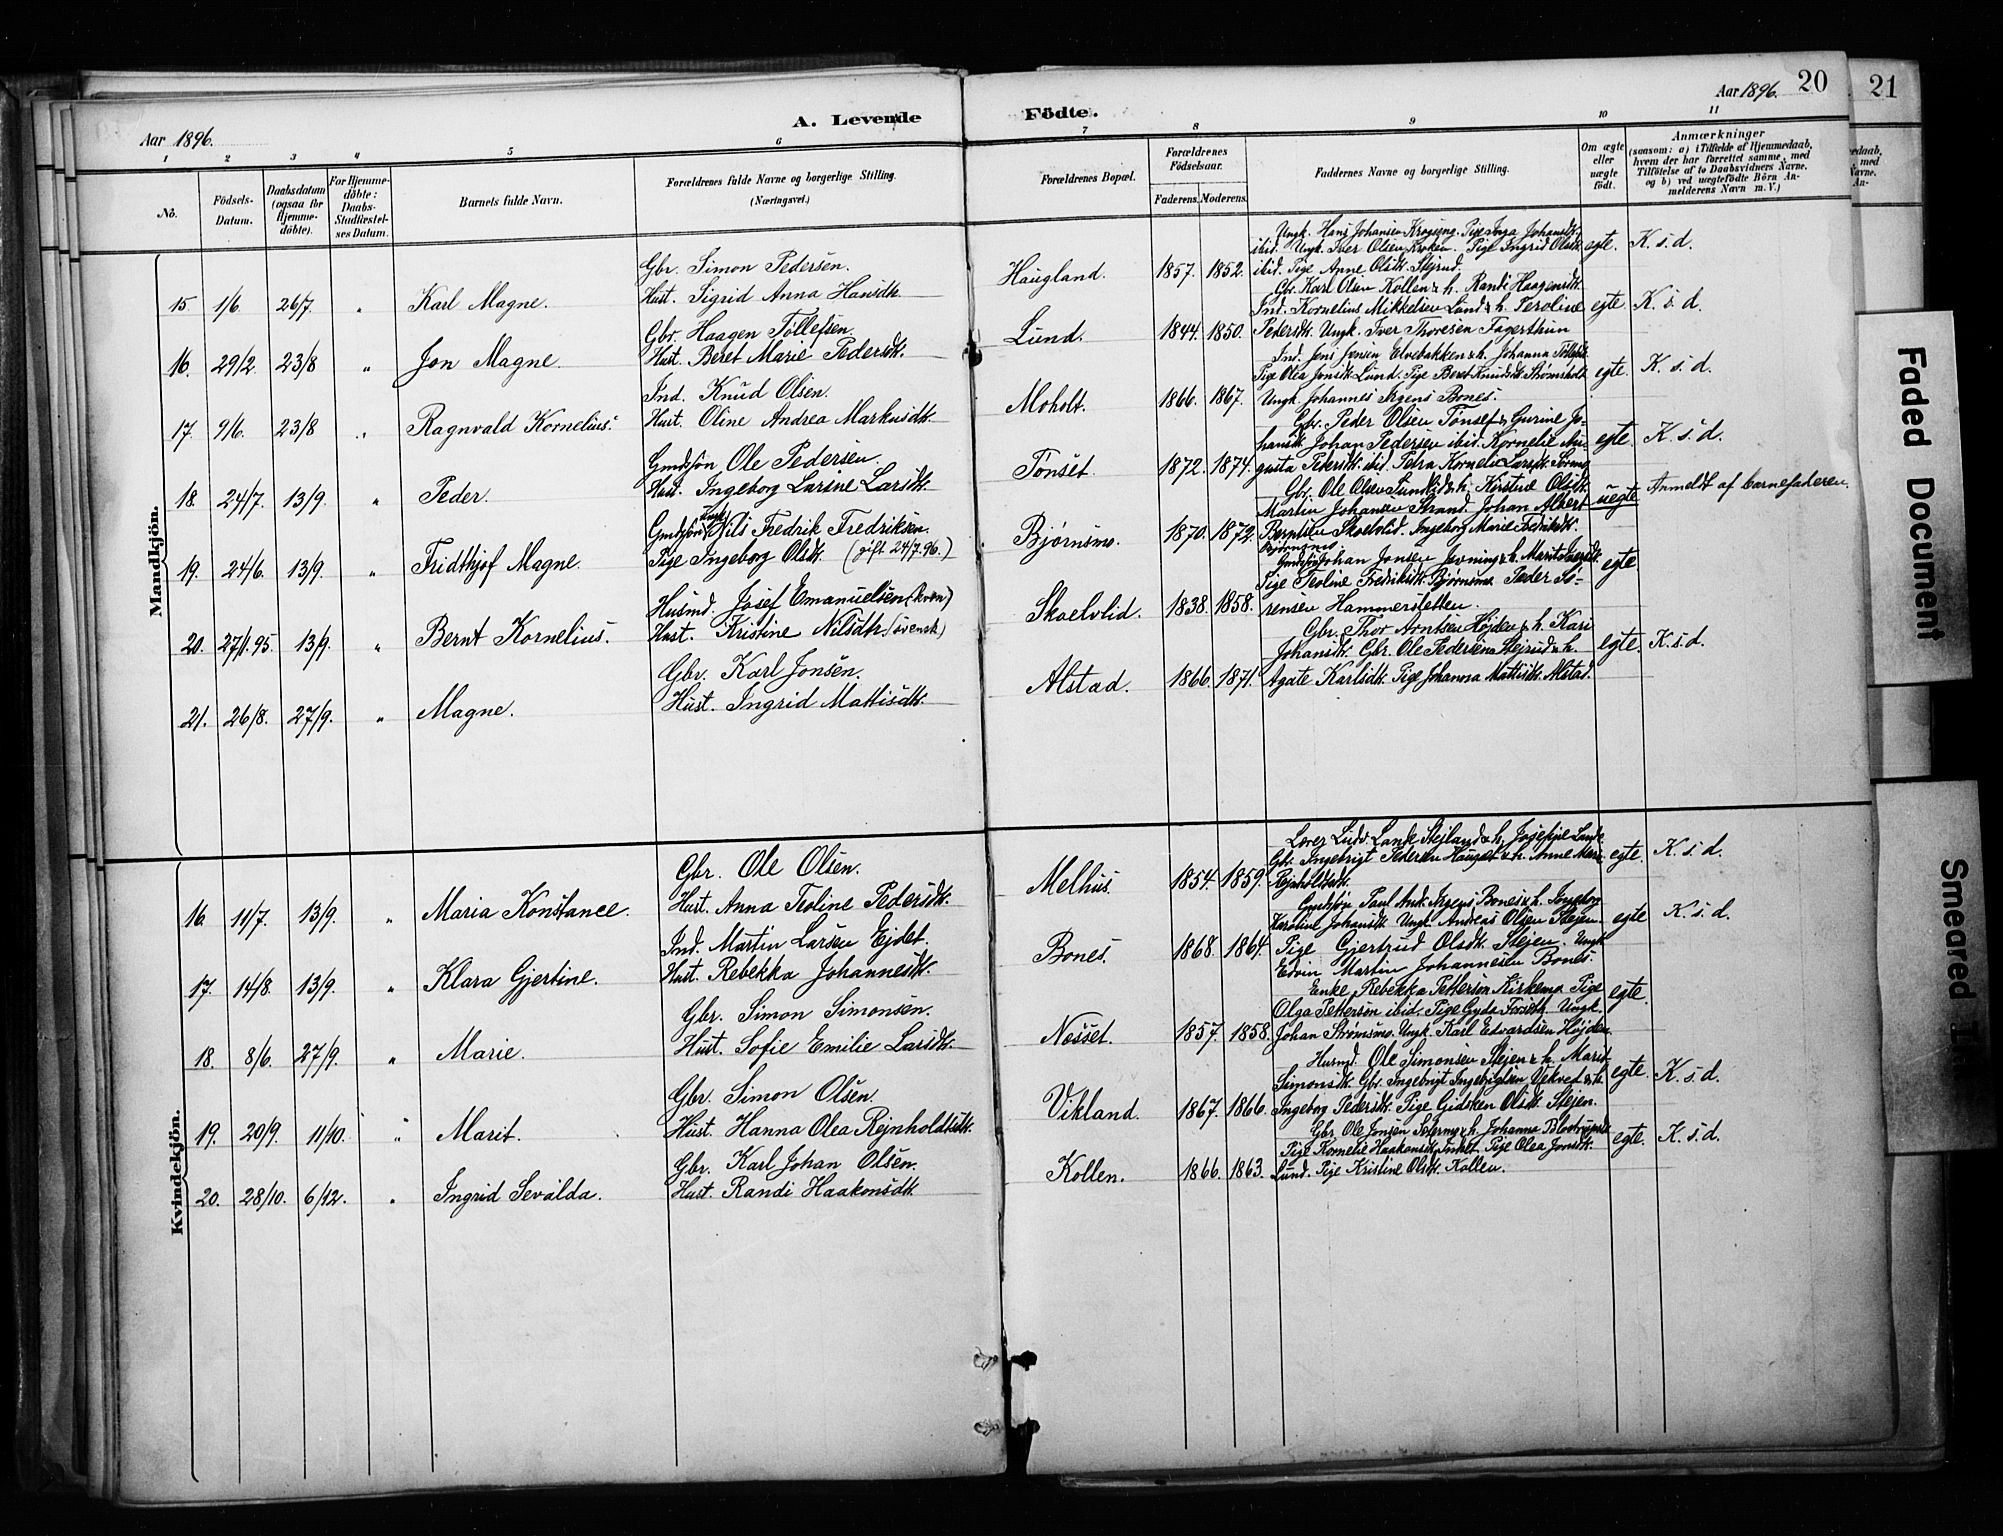 Aar 1896.
A. Levende Födte.
Aar 1896. 20
21
1 2 3 4 5 6 7 8 9 10 11
No.
Födsels-Datum.
Daabsdatum (ogsaa for Hjemme-döbte).
For Hjemme-döbte: Daabs-Stadfæstel-ses Datum.
Barnets fulde Navn.
Forældrenes fulde Navne og borgerlige Stilling.
(Næringsvei.)
Forældrenes Bopæl.
Forældrenes Födselsaar.
Faderens. Moderens.
Faddernes Navne og borgerlige Stilling.
Om ægte eller uægte födt.
Anmærkninger
(saasom: a) i Tilfælde af Hjemmedaab, hvem der har forrettet samme, med Tilföielse af to Daabsvidners Navne, og b) ved uægtefödte Börn An-melderens Navn m. V.)
Mandkjön.
15 1/6. 26/7. " Karl Magne.
Gbr. Simon Pedersen.
Hust. Sigrid Anna Hansdtr.
Haugland. 1857. 1852.
Ungk. Hans Johansen Pige Inga Johansdtr.
ibid. Ungk. Iver Olsen Kroken. Pige Ingrid Olsdtr.
ibid. Pige Anne Olsdtr.
egte. K.s.d.
16. 29/2. 23/8 " Jon Magne.
Gbr. Haagen Tollefsen.
Hust. Beret Marie Pedersdtr.
Lund. 1844. 1850.
Gbr. Karl Olsen Kollen & h. Randi Haagensdtr.
Ind. Kornelius Mikkelsen Lund & h. Peroline
Pedersdtr. Ungk. Iver Thoresen Fagerthun
egte. K.s.d.
17. 9/6. 23/8 " Ragnvald Kornelius.
Ind. Knud Olsen.
Hust. Oline Andrea Markusdtr.
Moholt. 1866. 1867.
Ind. Jens Jensen Elvebakken & h. Johanna
Pige Olea Jonsdtr. Lund. Pige Beret Knudsdtr. Strømsholt
Ungk. Johannes Bones.
egte. K.s.d.
18. 24/7. 13/9. " Peder.
Gmdssøn Ole Pedersen.
Hust. Ingeborg Larsine Larsdtr.
Tønset. 1872. 1874.
Gbr. Peder Olsen Tønset & Gurine Jo-
hansdtr. Johan Pedersen ibid. Kornelie Au-
gusta Pedersdtr. ibid. Petra Kornelie Larsdtr.
egte. K.s.d.
19. 24/6. 13/9. " Fridthjof Magne.
Gmdssøn Nils Fredrik Fredriksen.
Pige Ingeborg Olsdtr. (gift 24/7.96.)
Bjørnsmo. 1870. 1872.
Gbr. Ole Olsen & h. Kirstine Olsdtr.
Martin Johansen Strand. Johan Albert
Berntsen Skoelvlid. Ingeborg Marie Fredriksdtr.
Bjørnsmo.
uegte Anmeldt af barnefaderen.
20. 27/1.95. 13/9. " Bernt Kornelius.
Husmd. Josef Emanuelsen (kvæn)
Hust. Kristine Nilsdtr. (svensk)
Skoelvlid. 1838. 1858.
Gmdssøn Johan Jonsen & h. Marit
Pige Teoline Fredriksdtr. Bjørnsmo. Peder Sø-
rensen Hammersletten.
egte
21. 26/8. 27/9. " Magne.
Gbr. Karl Jonsen.
Hust. Ingrid Mattisdtr.
Alstad. 1866. 1871.
Gbr. Thor Arntsen Højden & h. Kari
Johansdtr. Gbr. Ole Pedersen & h.
Agate Karlsdtr. Pige Johanna Mattisdtr. Alstad.
egte. K.s.d.
Kvindekjön.
16. 11/7. 13/9. " Maria Konstance.
Gbr. Ole Olsen.
Hust. Anna Teoline Pedersdtr.
Melhus. 1854. 1859.
Lærer Ludv. Lande & h. Josefine Lande
Gbr. Ingebrigt Pedersen & h. Anne Marie
Rejnholdtsdtr.
egte. K.s.d.
17. 14/8. 13/9. " Klara Gjertine.
Ind. Martin Larsen Ejdet.
Hust. Rebekka Johannesdtr.
Bones. 1868. 1864.
Gmdssøn Paul Ant. Bones & h. Ingeborg
Karoline Johansdtr. Ungk. Andreas Olsen Stejen
Pige Gjertrud Olsdtr. Stejen. Ungk.
Edvin Martin Johannesen Bones.
egte K.s.d.
18. 8/6. 27/9. " Marie.
Gbr. Simon Simonsen.
Hust. Sofie Emilie Larsdtr.
Nesset. 1857. 1858.
Enke Rebekka Petterson Kirkemo Pige
Olga Petterson ibid. Pige Gyda Ungk.
Johan Strømsmo. Ungk. Karl Edvardsen Højden.
egte.
19. 20/9. 11/10. " Marit.
Gbr. Simon Olsen.
Hust. Hanna Olea Rejnholdtsdtr.
Vikland. 1867. 1866.
Husmd. Ole Simonsen Stejen & h. Marit
Simonsdtr. Gbr. Ingebrigt Ingebrigtsen Vekved & h.
Ingeborg Pedersdtr. Pige Gidsken Olsdtr. Stejen.
egte. K.s.d.
20. 28/10. 6/12. " Ingrid Sevalda.
Gbr. Karl Johan Olsen.
Hust. Randi Haakonsdtr.
Kollen. 1866. 1863.
Gbr. Ole Jonsen & h. Johanna
Pige Kornelie Haakonsdtr. Pige Olea Jonsdtr.
Lund. Pige Kristine Olsdtr. Kollen.
egte. K.s.d.
Faded Document
Smeared